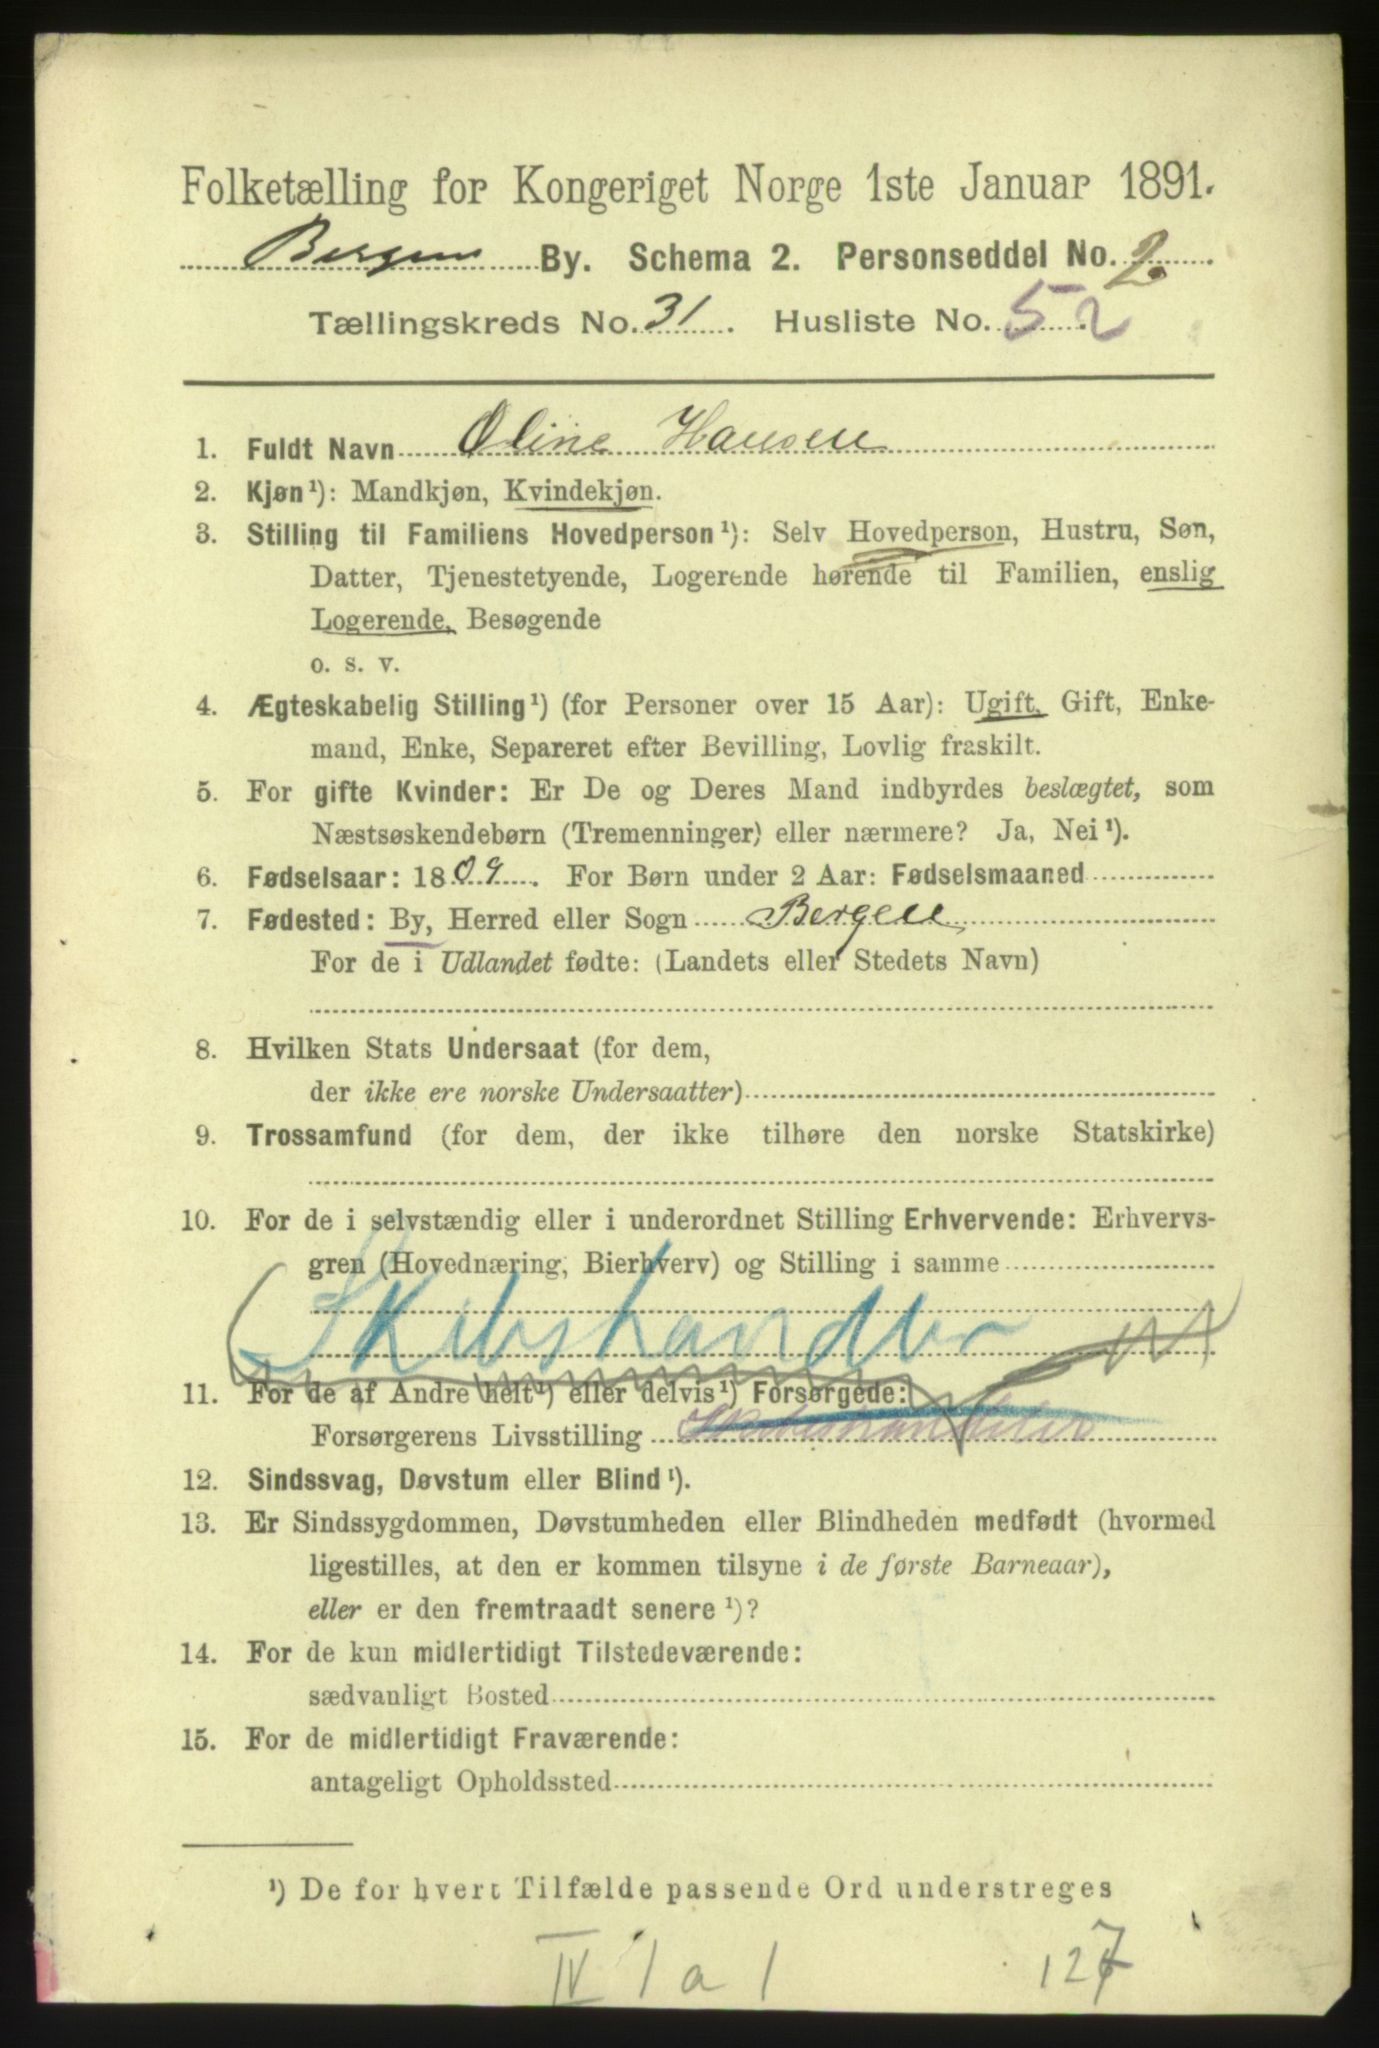 Folketælling for Kongeriget Norge 1ste Januar 1891.
Bergens By. Schema 2. Personseddel No. 2.
Tællingskreds No. 31. Husliste No. 52.
1. Fuldt Navn Oline Hansen
2. Kjøn¹): Mandkjøn, Kvindekjøn.
3. Stilling til Familiens Hovedperson¹): Selv Hovedperson, Hustru, Søn,
Datter, Tjenestetyende, Logerende hørende til Familien, enslig
Logerende, Besøgende
o. s. v.
4. Ægteskabelig Stilling¹) (for Personer over 15 Aar): Ugift, Gift, Enke-
mand, Enke, Separeret efter Bevilling, Lovlig fraskilt.
5. For gifte Kvinder: Er De og Deres Mand indbyrdes beslægtet, som
Næstsøskendebørn (Tremenninger) eller nærmere? Ja, Nei¹).
6. Fødselsaar: 1809. For Børn under 2 Aar: Fødselsmaaned
7. Fødested: By, Herred eller Sogn Bergen
For de i Udlandet fødte: (Landets eller Stedets Navn)
8. Hvilken Stats Undersaat (for dem,
der ikke ere norske Undersaatter)
9. Trossamfund (for dem, der ikke tilhøre den norske Statskirke)
10. For de i selvstændig eller i underordnet Stilling Erhvervende: Erhvervs-
gren (Hovednæring, Bierhverv) og Stilling i samme
Skibshandler
11. For de af Andre helt¹) eller delvis¹) Forsørgede:
Forsørgerens Livsstilling Skibshandler
12. Sindssvag, Døvstum eller Blind¹).
13. Er Sindssygdommen, Døvstumheden eller Blindheden medfødt (hvormed
ligestilles, at den er kommen tilsyne i de første Barneaar),
eller er den fremtraadt senere¹)?
14. For de kun midlertidigt Tilstedeværende:
sædvanligt Bosted
15. For de midlertidigt Fraværende:
antageligt Opholdssted
¹) De for hvert Tilfælde passende Ord understreges
IV 1 a 1 127